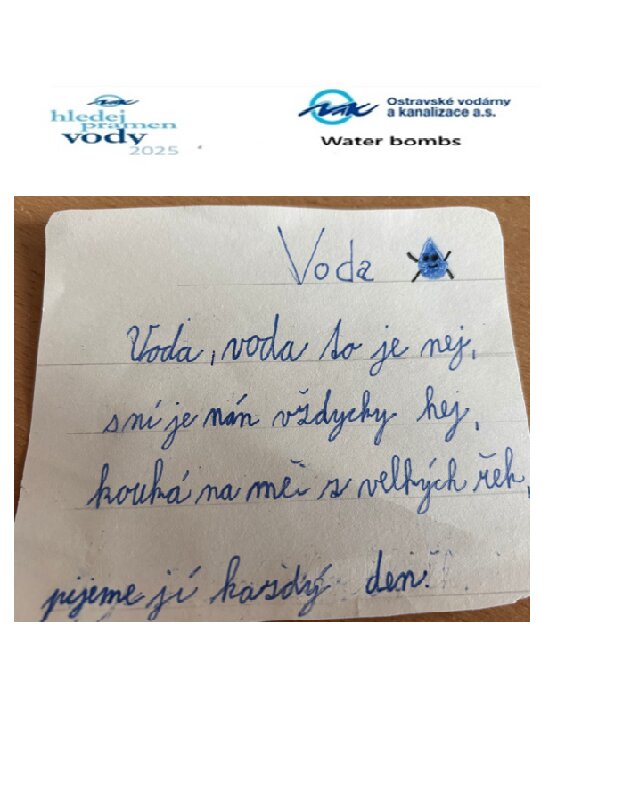 hledej
pramen
vody
2025
Ostravské vodárny
a kanalizace a.s.
Water bombs
Voda
Voda, voda to je nej,
sní je nán vždycky hej,
kouká na mě z velkých řek,
pijeme jí kasdý den!